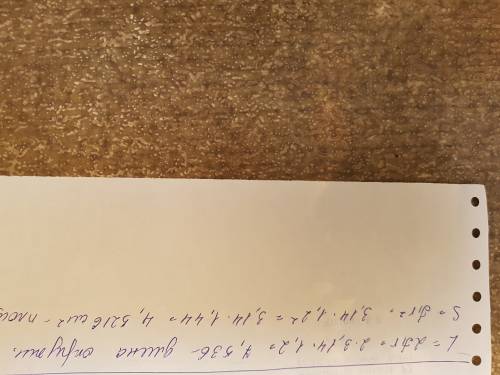 L = 2πr = 2·3,14·1,2 = 7,536 - длина окружн.
S = πr² = 3,14·1,2² = 3,14·1,44 = 4,5216 см² - площ